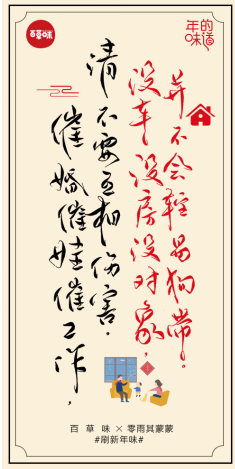 百草味
年的
味道
催婚催娃催工作,
请不要互相伤害。
没车没房没对象,
并不会轻易狗带。
百 草 味 × 零雨其蒙蒙
#刷新年味#